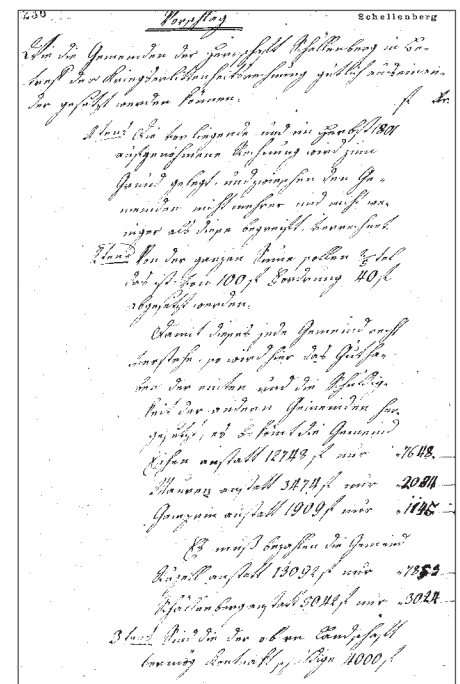 230
Schellenberg
Vorschlag
Wie die Gemeinden der Herrschaft Schällenberg in Be-
treff der Kriegserlittenheitsrechnung gütlich auseinan-
der gesetzt werden können.
f kr.
1tens Die vorliegende und im Herbst 1801
aufgenohmene Rechnung wird zum
Grund gelegt, und zwischen den Ge-
meinden nicht mehrer und nicht we-
niger als diese begreift, verrechnet.
2tens Von der ganzen Sume sollen 2/5tel
das ist von 100 f Fordrung 40 f
abgesetzt werden.
Damit dieses jede Gemeind recht
verstehe, so wird hier das Gutha-
ben der einten und die Schuldig-
keit der andern Gemeinden her-
gesetzt, es bekömt die Gemeind
Eschen anstatt 12748 f nur 7648.
Mauren anstatt 3474 f nur 2084
Gamprin anstatt 1909 f nur 1145
Es muß bezahlen die Gemeind
Rugell anstatt 13092 f nur 7853
Schällenberg anstatt 5042 f nur 3024
3tens Sind die der obren Landschaft
vermög Contrakt 4000 f